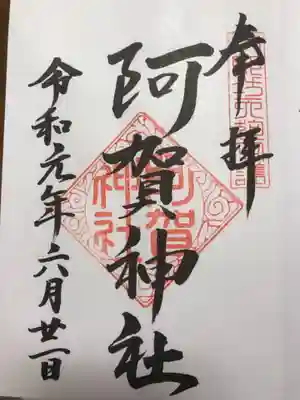 奉拝
阿賀神社
令和元年六月廿一日
阿賀
神社